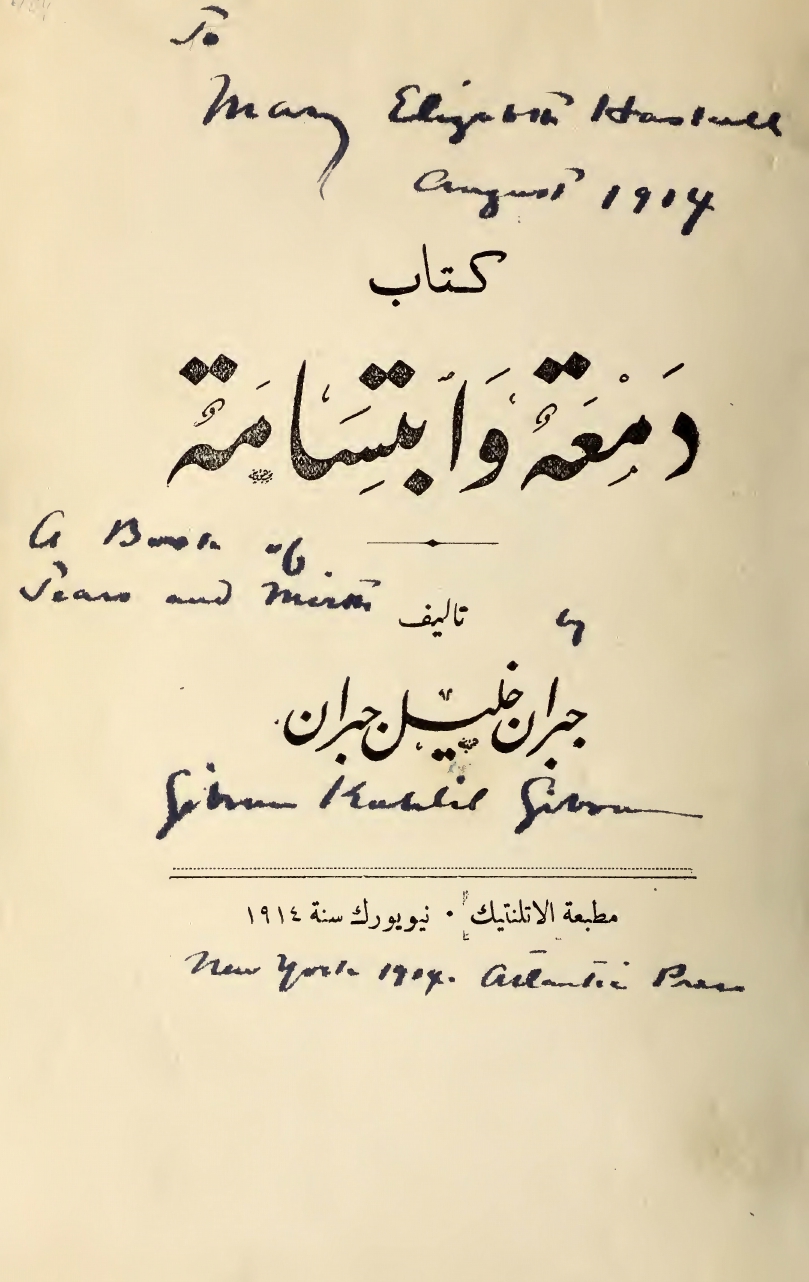 To
Mary Elizabeth Haskell
August 1914
كتاب
دَمْعَةٌ وَٱبْتِسَامَةٌ
A Book of
Tears and Mirth
تاليف
by
جبران خليل جبران
Gibran Kahlil Gibran
مطبعة الاتلنتيك ٠ نيويورك سنة ١٩١٤
New York 1914. Atlantic Press